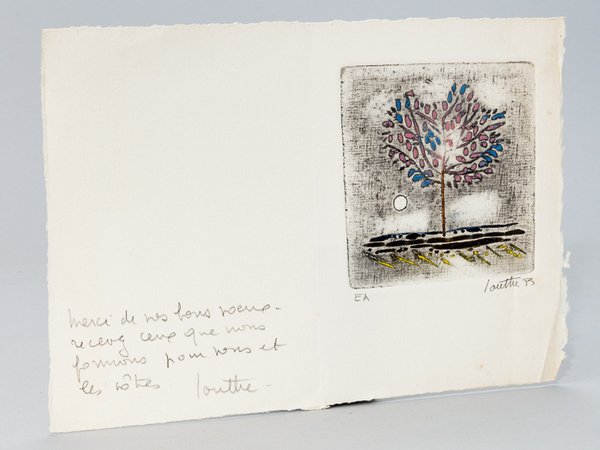 Merci de vos bons voeux.
recevez ceux que nous
formons pour vous et
les vôtres. Louttre.
EA
Louttre 75